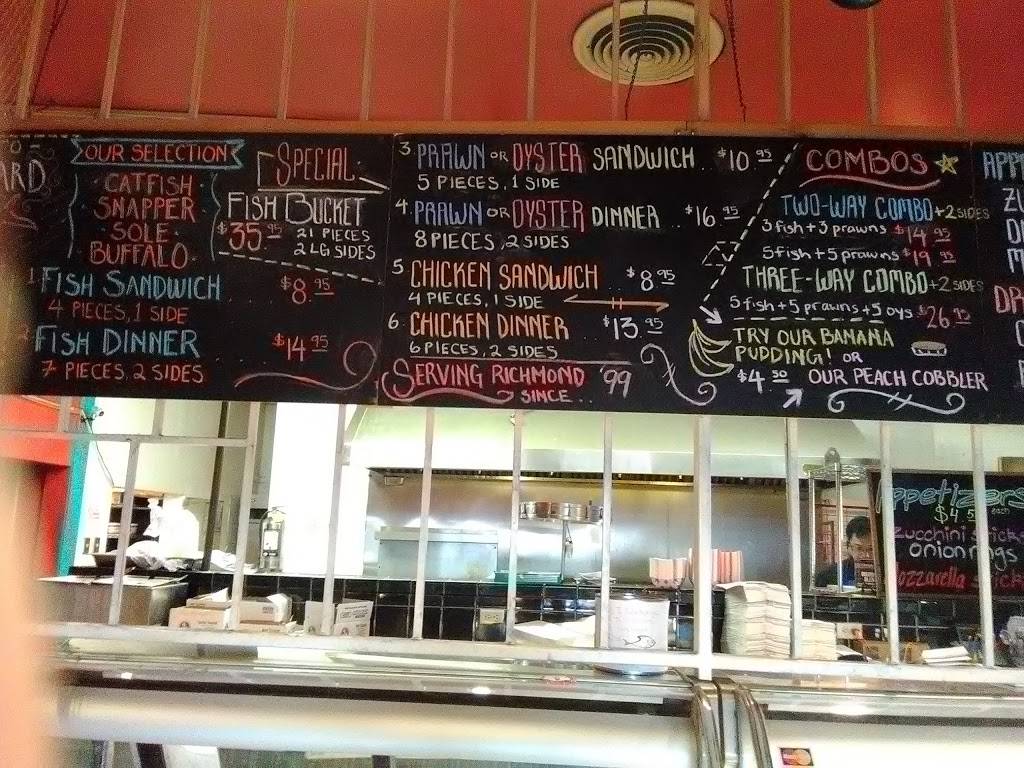 ARD
OUR SELECTION
CATFISH
SNAPPER
SOLE
BUFFALO
SPECIAL
FISH BUCKET
$35.95 21 PIECES
2 LG SIDES
1. FISH SANDWICH $8.95
4 PIECES, 1 SIDE
2. FISH DINNER $14.95
7 PIECES, 2 SIDES
3. PRAWN OR OYSTER SANDWICH $10.95
5 PIECES, 1 SIDE
4. PRAWN OR OYSTER DINNER $16.95
8 PIECES, 2 SIDES
5. CHICKEN SANDWICH $8.95
4 PIECES, 1 SIDE
6. CHICKEN DINNER $13.95
6 PIECES, 2 SIDES
SERVING RICHMOND '99
SINCE...
COMBOS
TWO-WAY COMBO +2 SIDES
3 fish + 3 prawns $14.95
5 fish + 5 prawns $19.95
THREE-WAY COMBO +2 SIDES
5 fish + 5 prawns + 5 oys $26.95
TRY OUR BANANA
PUDDING! OR
$4.50 OUR PEACH COBBLER
APP
ZU
DR
Appetizers
$4.50 each
Zucchini sticks
onion rings
Mozzarella sticks
MasterCard